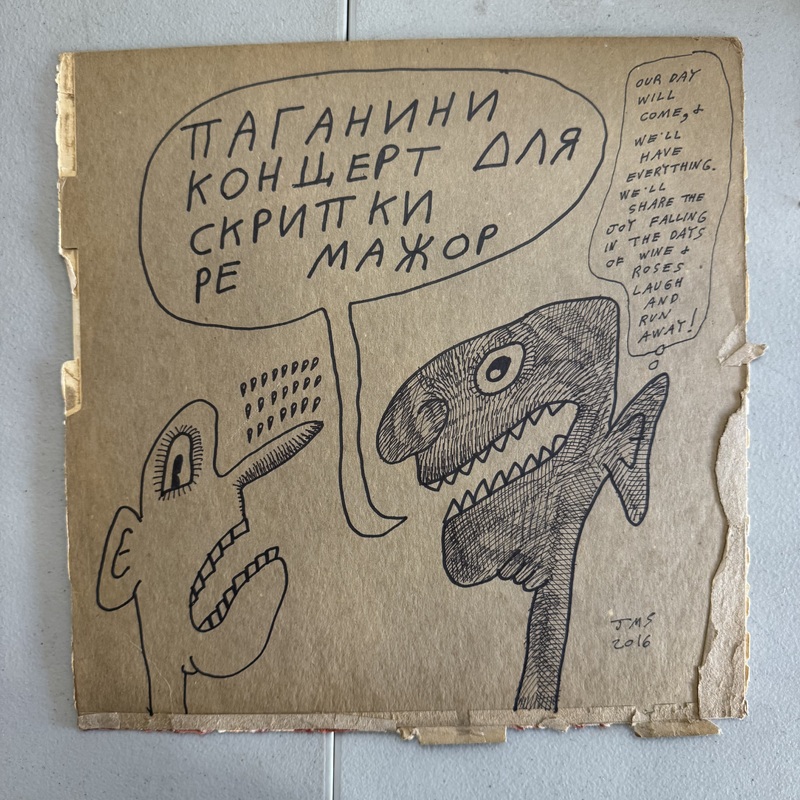 ПАГАНИНИ
КОНЦЕРТ ДЛЯ
СКРИПКИ
РЕ МАЖОР
OUR DAY
WILL
COME, &
WE'LL
HAVE
EVERYTHING.
WE'LL
SHARE THE
JOY FALLING
IN THE DAYS
OF WINE &
ROSES.
LAUGH
AND
RUN
AWAY!
JMS
2016